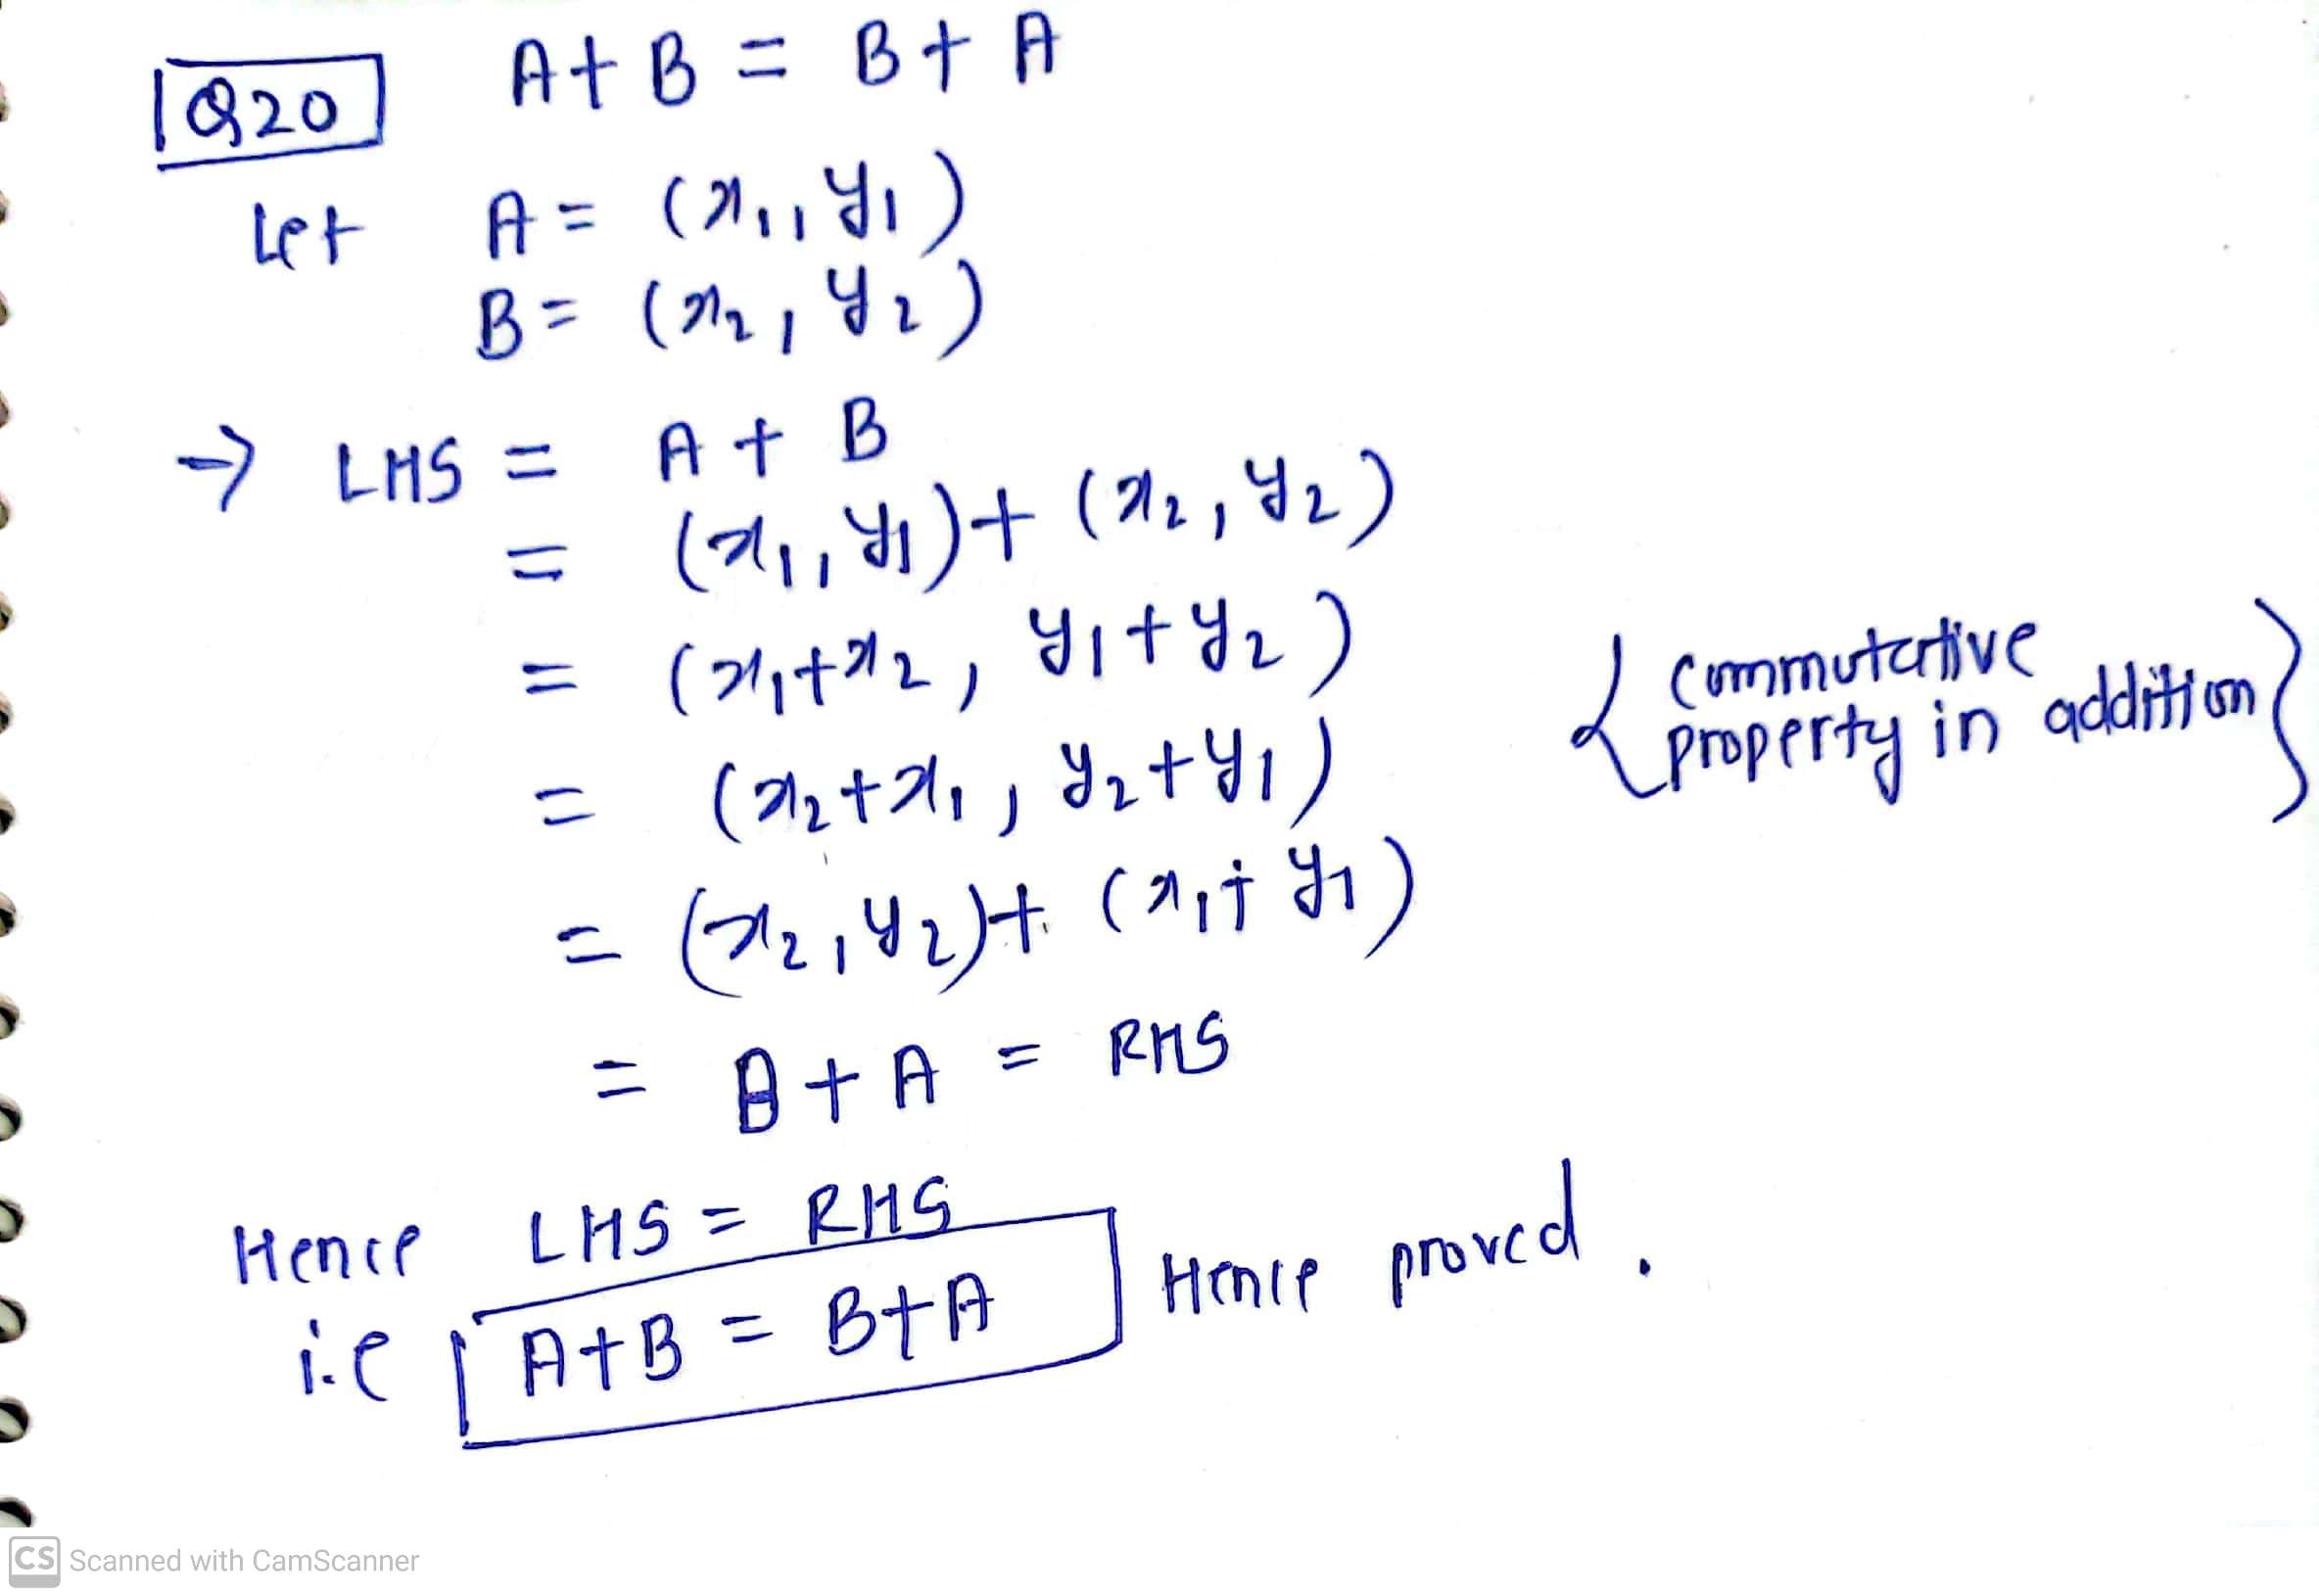 Q20 A+B = B+A
Let A = (x₁, y₁)
B = (x₂, y₂)
→ LHS = A + B
= (x₁, y₁) + (x₂, y₂)
= (x₁+x₂, y₁+y₂)
{commutative property in addition}
= (x₂+x₁, y₂+y₁)
= (x₂, y₂) + (x₁+ y₁)
= B + A = RHS
Hence LHS = RHS
i.e A+B = B+A Hence proved.
CS Scanned with CamScanner